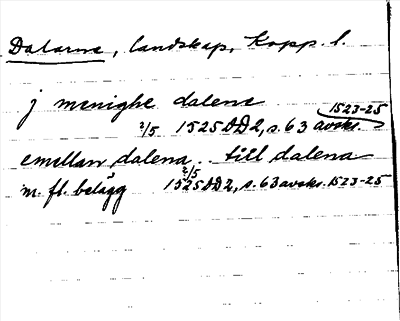 Dalarne, landskap, Kopp. l.
j menighe dalene
2/5 1525 DD2, s. 63 avskr. 1523-25
emellan dalena .. till dalena
m. fl. belägg 2/5 1525 DD2, s. 63 avskr. 1523-25